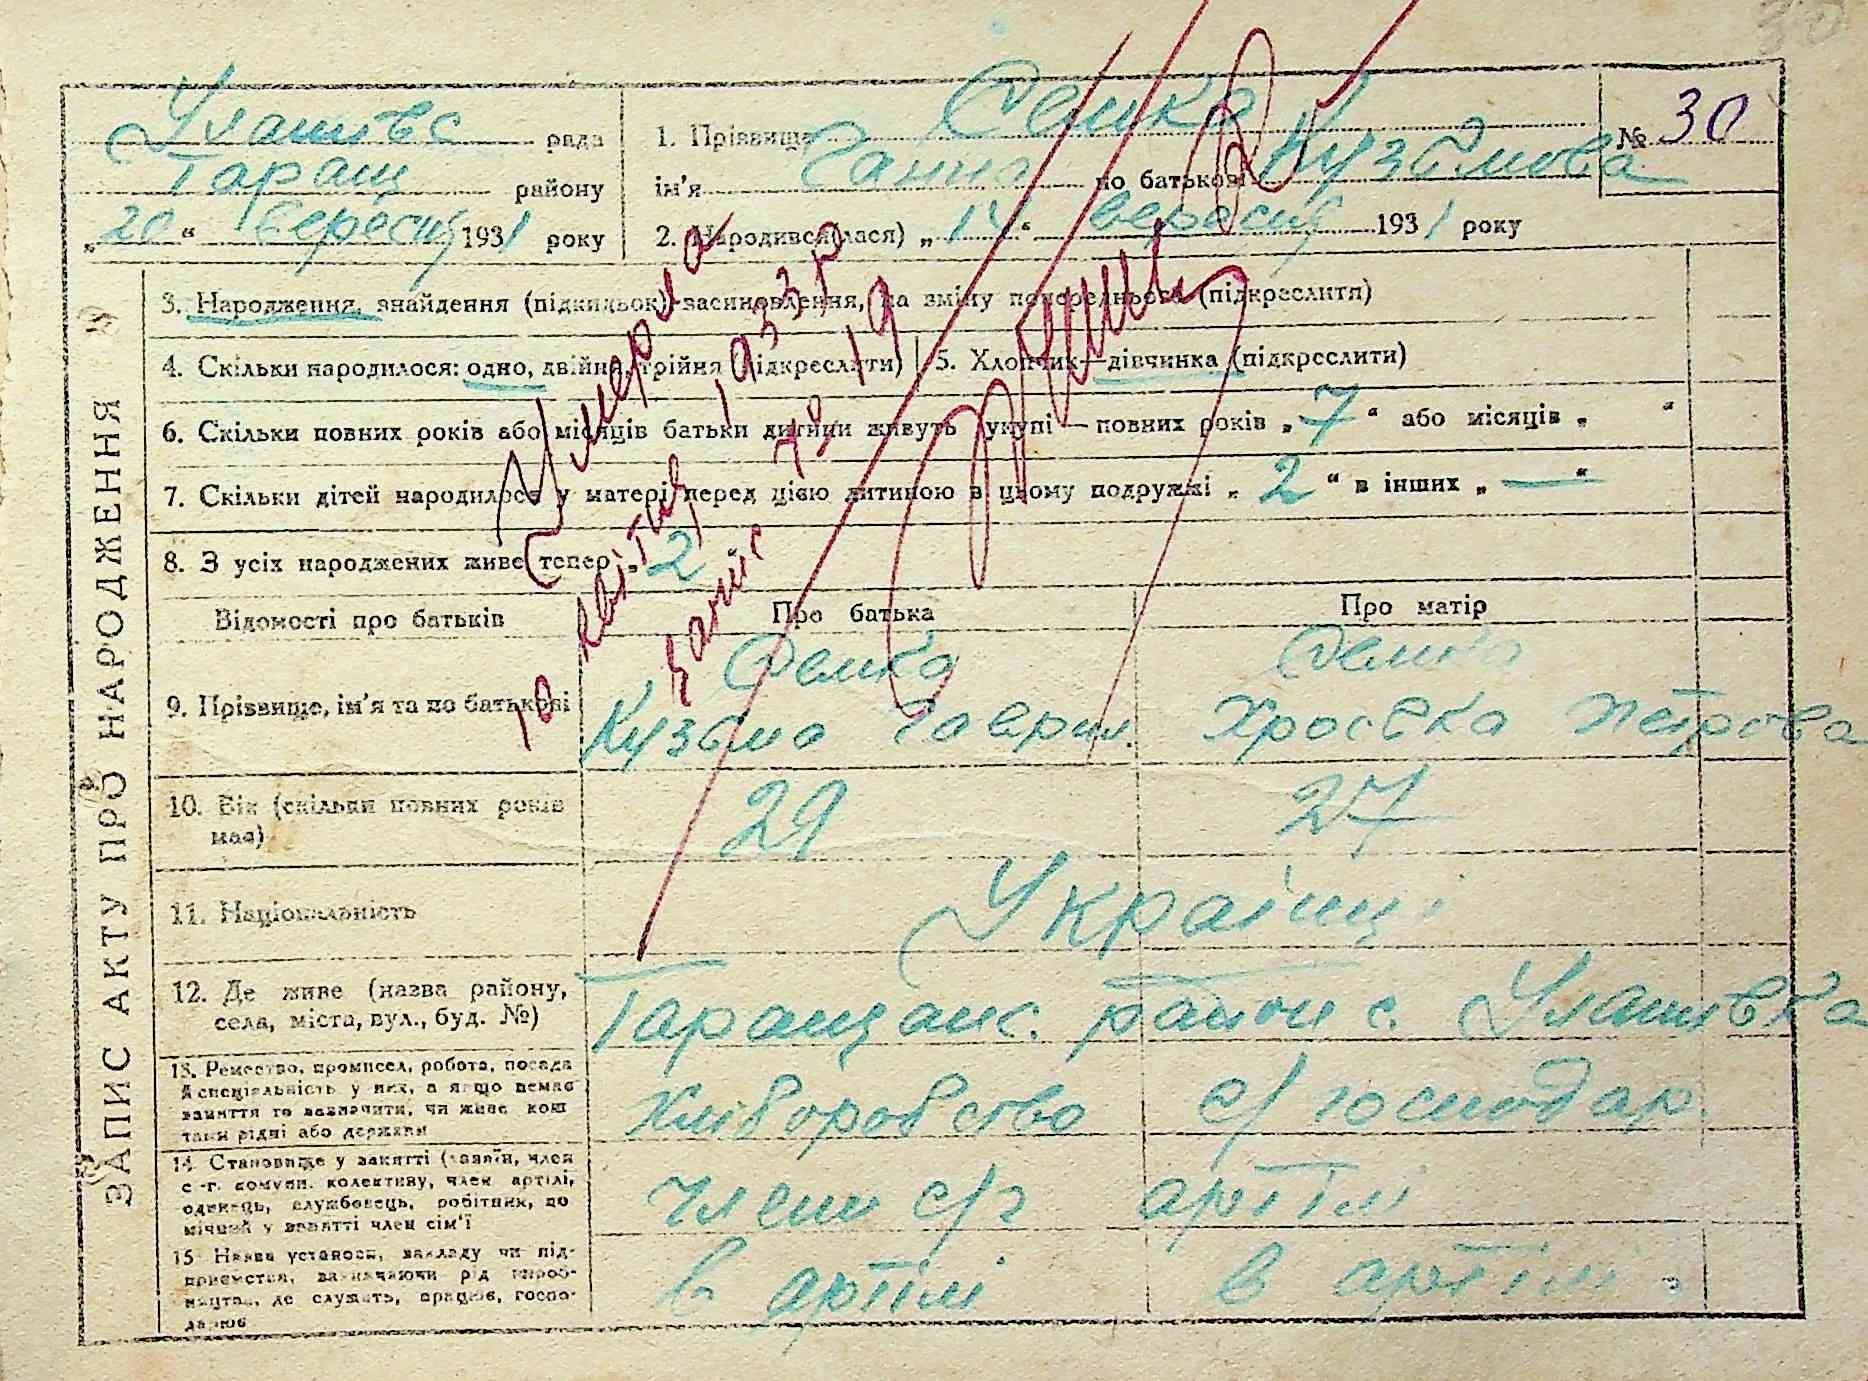 30
Улашівс рада
Таращ району
„20“ вересня 1931 року
1. Прізвище Демка
ім'я Ганна по батькові Кузьмова
№ 30
2. Народився(лася) „14“ вересня 1931 року
3. Народження, знайдення (підкидьок) засиновлення, на зміну попереднього (підкреслити)
4. Скільки народилося: одно, двійня, трійня (підкреслити)
5. Хлопчик—дівчинка (підкреслити)
6. Скільки повних років або місяців батьки дитини живуть укупі — повних років „7“ або місяців „ “
7. Скільки дітей народилося у матері перед цією дитиною в цьому подружжі „2“ в інших „—“
8. З усіх народжених живе тепер „2
Умерла
10 квітня 1933 р
запис № 19
ЗАПИС АКТУ ПРО НАРОДЖЕННЯ
Відомості про батьків Про батька Про матір
9. Прізвище, ім'я та по батькові
Демка Демка
Кузьма Гаврил. Хроська Петрова
10. Вік (скільки повних років має) 29 27
11. Національність Українці
12. Де живе (назва району, села, міста, вул., буд. №)
Таращанс. район с. Улашівка
13. Ремество, промисел, робота, посада й спеціяльність у них, а якщо немає заняття то зазначити, чи живе кош тами рідні або держави
Хліборобство с/господар.
14. Становище у занятті (хазяїн, член с.-г. комуни, колективу, член артілі, одинець, службовець, робітник, по мічний у занятті член сім'ї
член с/г артілі
15 Назва установи, закладу чи під- приємства, зазначаючи рід вироб- ництва, де служить, працює, госпо- дарює
в артілі в артілі